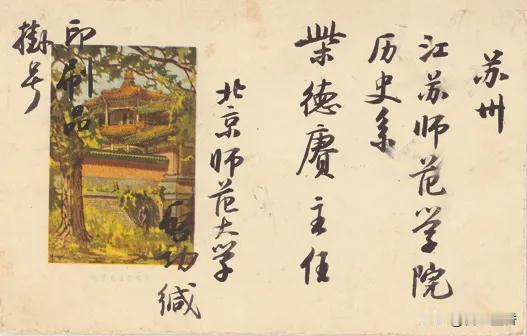 苏州
江苏师范学院
历史系
柴德赓主任
北京师范大学
启功缄
印刷品
挂号